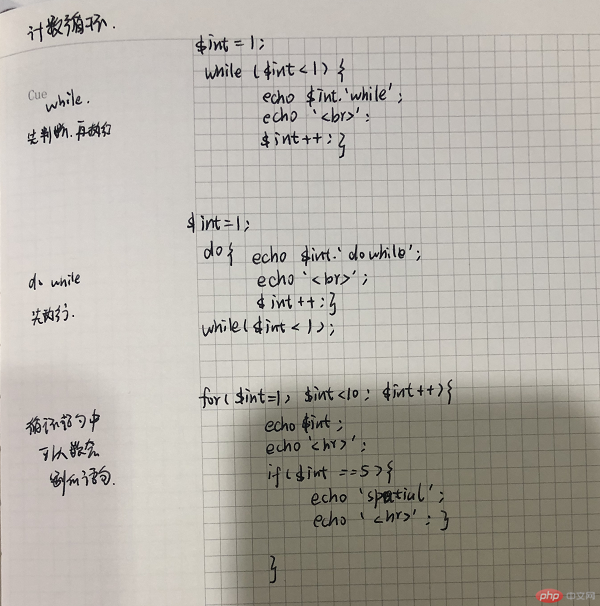 计数循环.
$int=1;
while ($int<1) {
Cue
while.
echo $int.'while';
echo '<br>';
先判断.再执行
$int++;}
$int=1;
do{ echo $int.'do while';
do while
echo '<br>';
先执行.
$int++;}
while($int<1);
for($int=1; $int<10; $int++){
循环语句中
echo $int;
可以嵌套
echo '<hr>';
判断语句.
if($int ==5){
echo 'spatial';
echo '<hr>';}
}
php 中文网